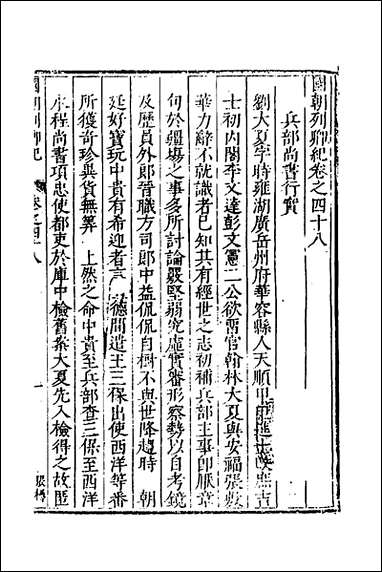 國朝列卿紀卷之四十八
兵部尚書行實
劉大夏字時雍湖廣岳州府華容縣人天順甲申進士改庶吉
士初内閣李文達彭文憲二公欲留官翰林大夏與安福張敷
華力辭不就識者已知其有經世之志初補兵部主事即厭章
句於疆場之事多所討論嚴堅翦究虛實審形察勢以自考鏡
及歷員外郎晉職方司郎中益侃侃自樹不與世降趨時　朝
廷好寶玩中貴有希迎者言　德間遣王三保出使西洋等番
所獲奇珍異貨無筭　上然之命中貴至兵部查三保至西洋
水程尚書項忠使都吏於庫中檢舊案大夏先入檢得之故匿
國朝列卿紀
卷之四十八
一